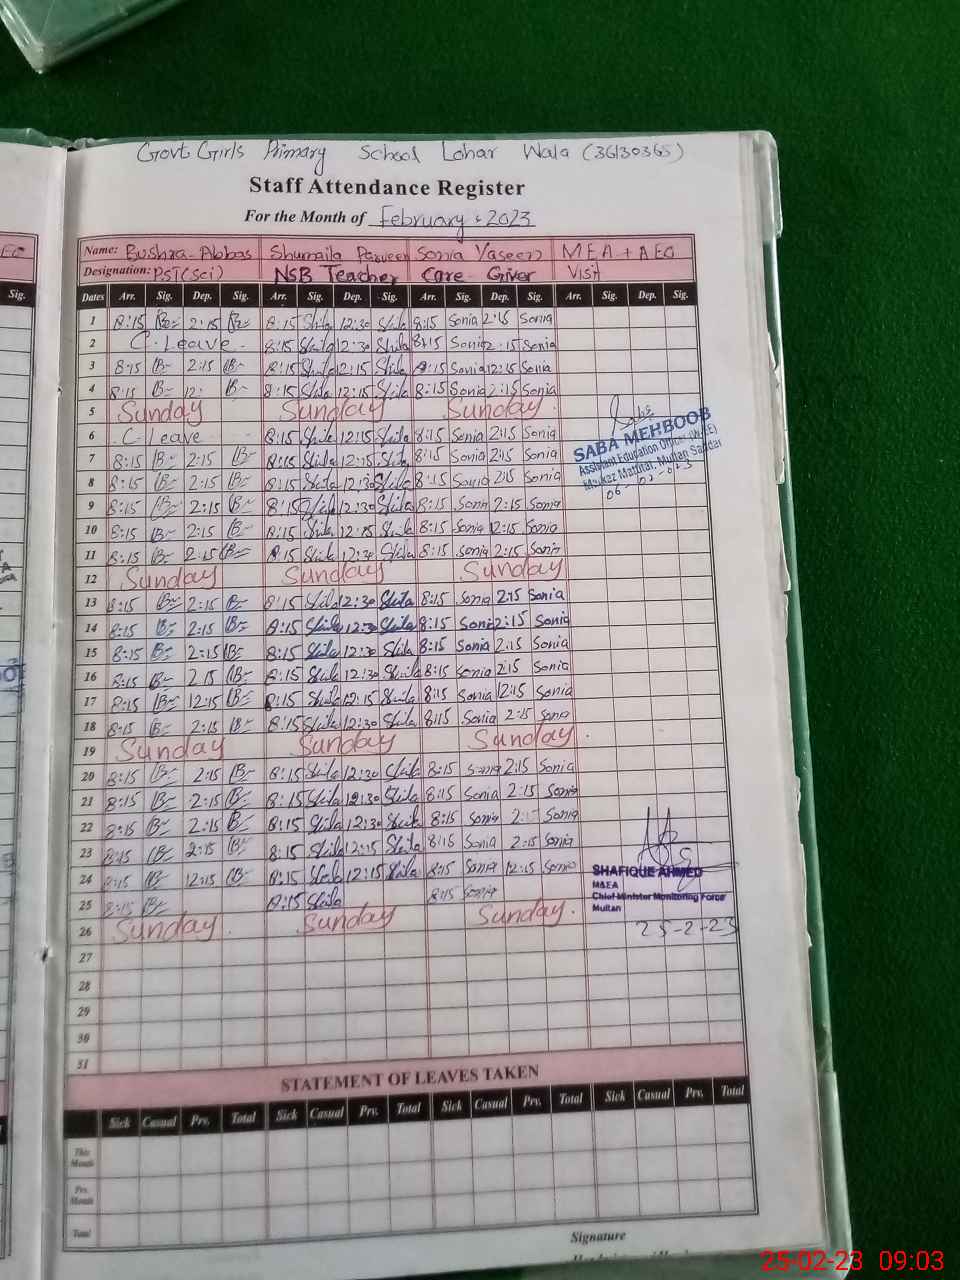 Govt Girls Primary School Lohar Wala (36130365)
Staff Attendance Register
For the Month of February 2023
Name: Bushra Abbas Shumaila Parveen Sonia Yaseen MEA + AEO
Designation: PST(Sci) NSB Teacher Care Giver Visit
Sig. Dates Arr. Sig. Dep. Sig. Arr. Sig. Dep. Sig. Arr. Sig. Dep. Sig. Arr. Sig. Dep. Sig.
1 8:15 2:15 8:15 12:30 8:15 Sonia 2:15 Sonia
2 C. Leave 8:15 12:30 8:15 Sonia 2:15 Sonia
3 8:15 2:15 8:15 12:15 8:15 Sonia 12:15 Sonia
4 8:15 8:15 12:15 8:15 Sonia 2:15 Sonia
5 Sunday Sunday Sunday
6 C Leave 8:15 12:15 8:15 Sonia 2:15 Sonia
7 8:15 2:15 8:15 12:15 8:15 Sonia 2:15 Sonia
8 8:15 2:15 8:15 12:30 8:15 Sonia 2:15 Sonia
9 8:15 2:15 8:15 12:30 8:15 Sonia 2:15 Sonia
10 8:15 2:15 8:15 12:15 8:15 Sonia 12:15 Sonia
11 8:15 2:15 8:15 12:30 8:15 Sonia 2:15 Sonia
12 Sunday Sunday Sunday
13 8:15 2:15 8:15 12:30 8:15 Sonia 2:15 Sonia
14 8:15 2:15 8:15 12:30 8:15 Sonia 2:15 Sonia
15 8:15 2:15 8:15 12:30 8:15 Sonia 2:15 Sonia
16 8:15 2 15 8:15 12:30 8:15 Sonia 2:15 Sonia
17 8:15 12:15 8:15 12:15 8:15 Sonia 12:15 Sonia
18 8:15 2:15 8:15 12:30 8:15 Sonia 2:15 Sonia
19 Sunday Sunday Sunday
20 8:15 2:15 8:15 12:30 8:15 Sonia 2:15 Sonia
21 8:15 2:15 8:15 12:30 8:15 Sonia 2:15 Sonia
22 8:15 2:15 8:15 12:30 8:15 Sonia Sonia
23 8:15 2:15 8:15 12:15 8:15 Sonia 2:15 Sonia
24 8:15 12:15 8:15 12:15 8:15 Sonia 12:15 Sonia
25 8:15 8:15 8:15 Sonia
26 Sunday Sunday Sunday
27
28
29
30
31
SABA MEHBOOB
Assistant Education Officer (W-EE)
Markaz Mattital, Multan Saddar
SHAFIQUE AHMED
M&EA
Chief Minister Monitoring Force
Multan
25-2-23
STATEMENT OF LEAVES TAKEN
Sick Casual Prv. Total Sick Casual Prv. Total Sick Casual Prv. Total Sick Casual Prv. Total
This Month
Prv. Month
Total
Signature
25-02-23 09:03